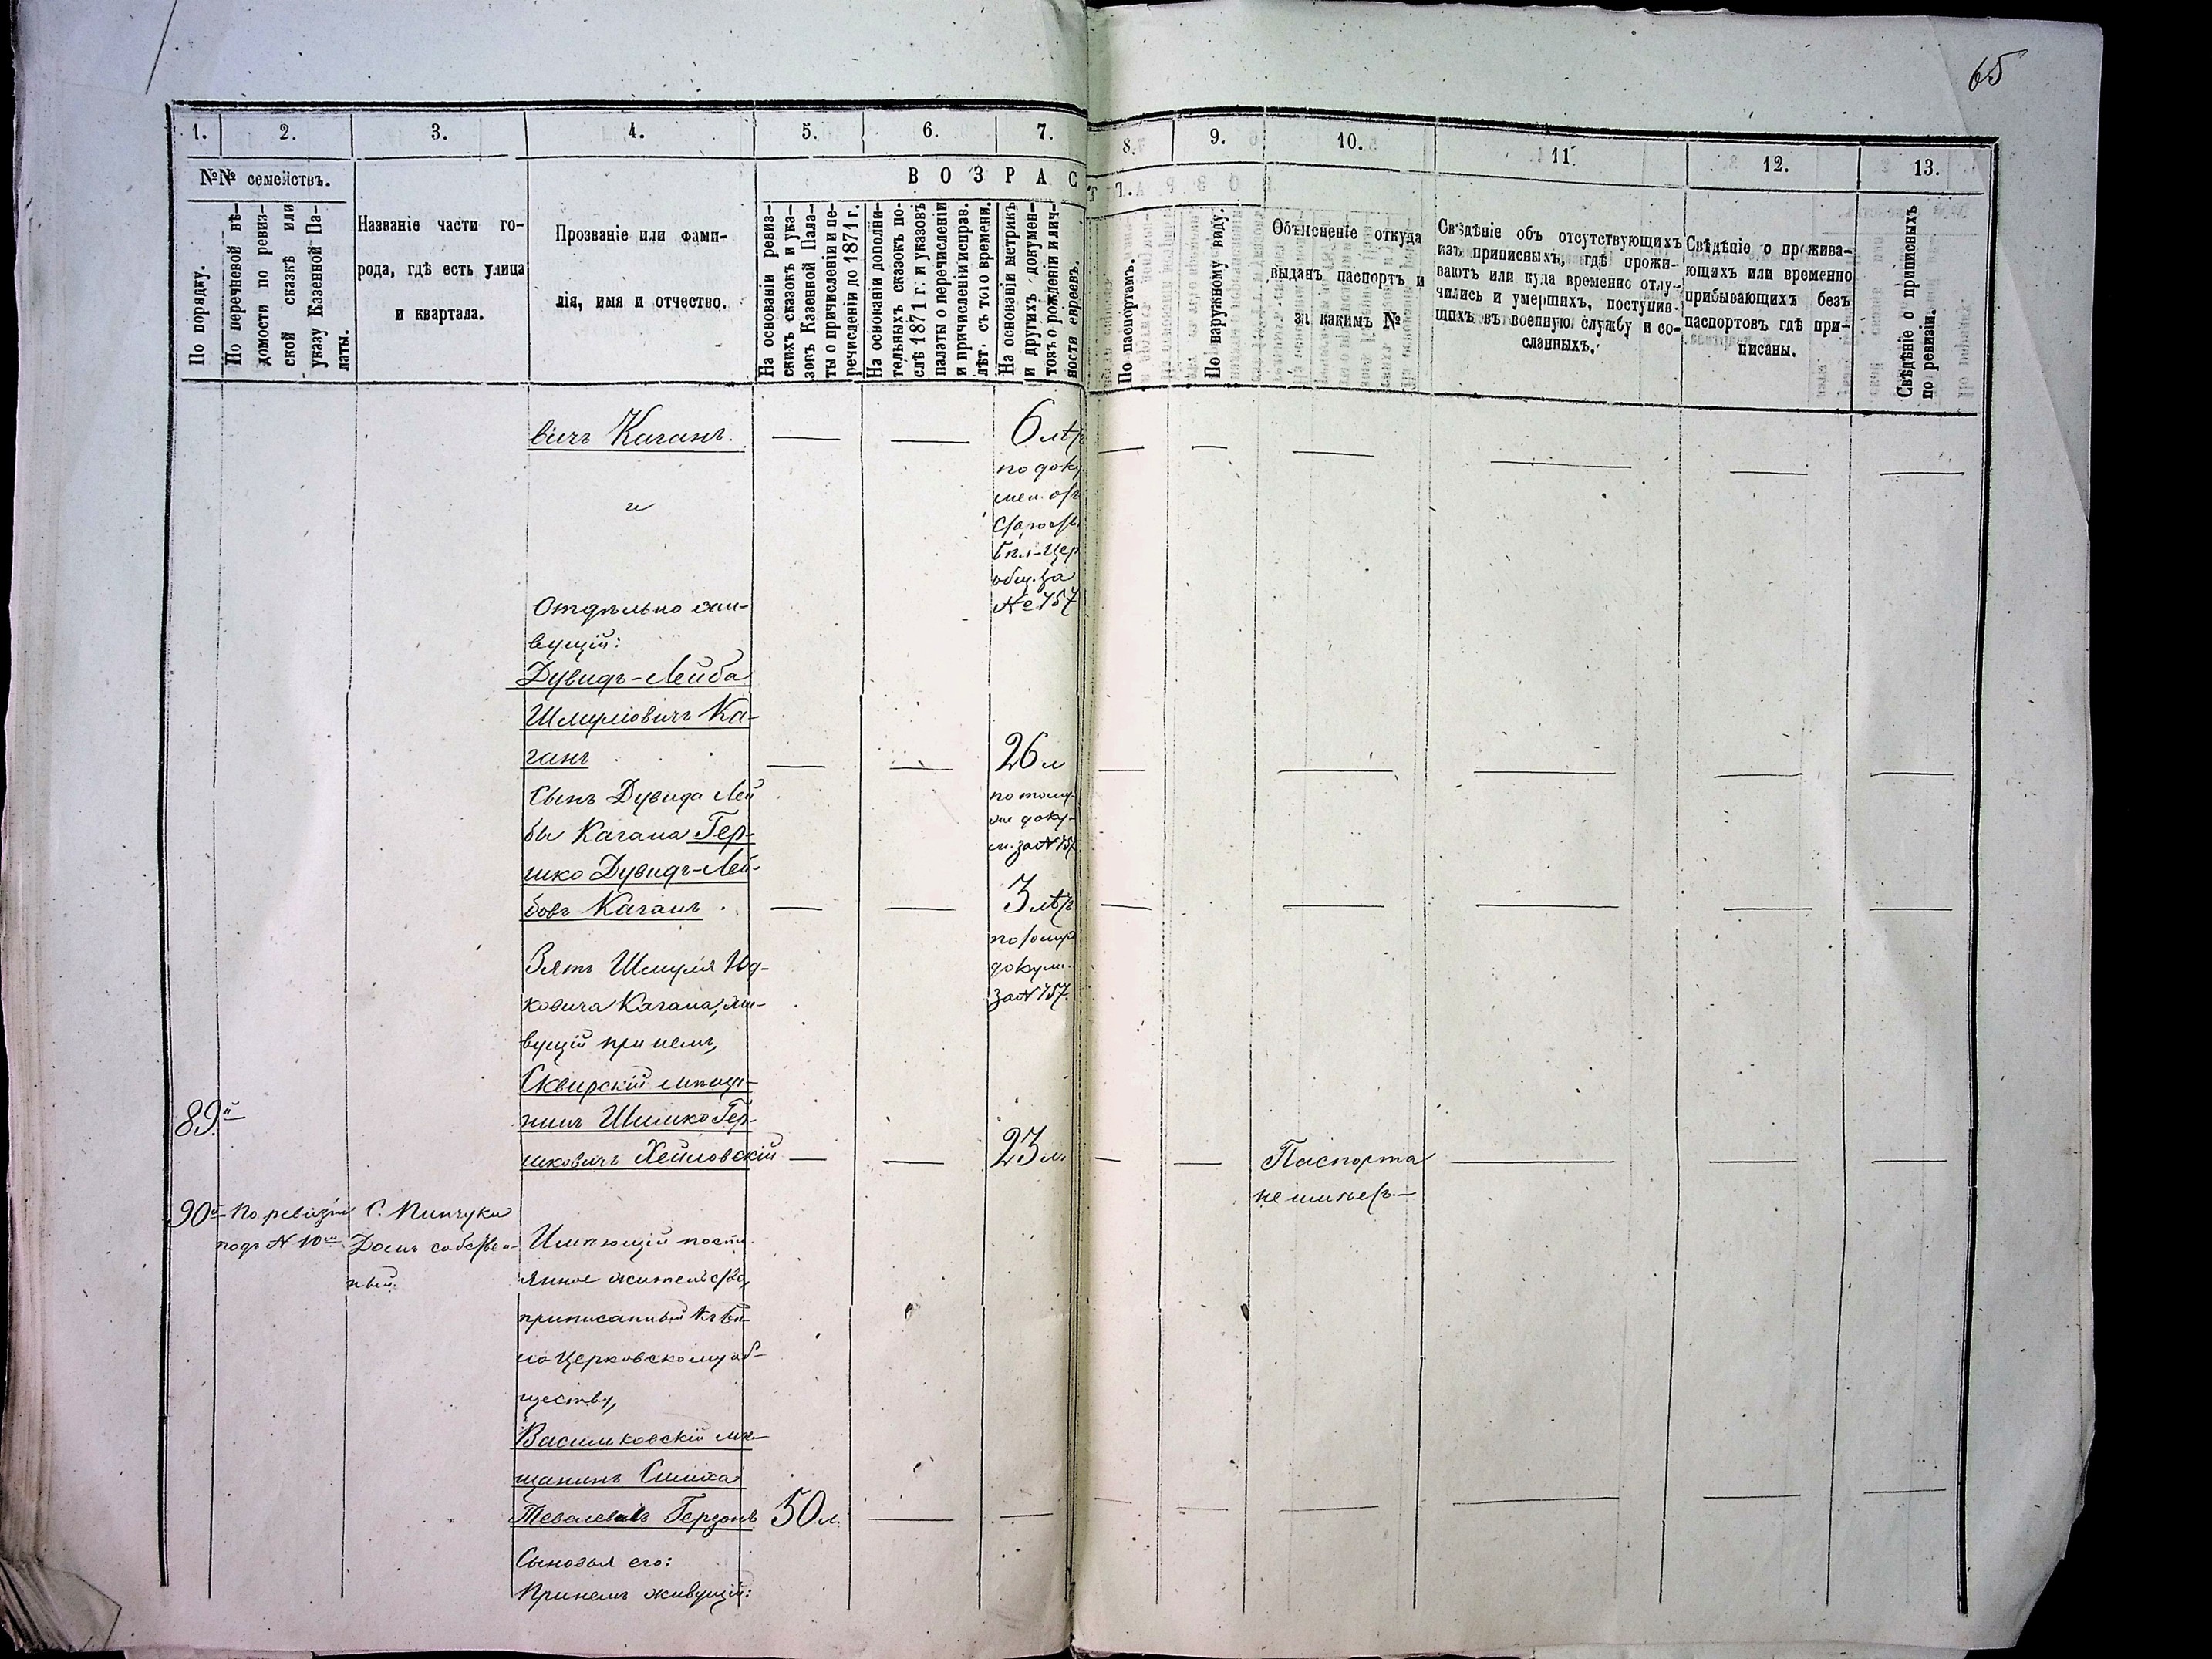 65
1. 2. 3. 4. 5. 6. 7. 8. 9. 10. 11. 12. 13.
№№ семействъ.
ВОЗРАСТЪ.
По порядку.
По перечневой вѣ-
домости по ревиз-
ской сказкѣ или
указу Казенной Па-
латы.
Названіе части го-
рода, гдѣ есть улица
и квартала.
Прозваніе или фами-
лія, имя и отчество.
На основаніи ревиз-
скихъ сказокъ и ука-
зовъ Казенной Пала-
ты о причисленіи и пе-
речисленіи до 1871 г.
На основаніи дополни-
тельныхъ сказокъ по-
слѣ 1871 г. и указовъ
палаты о перечисленіи
и причисленіи исправ.
лѣт. съ того времени.
На основаніи метрикъ
и другихъ докумен-
товъ о рожденіи и лич-
ности евреевъ.
По паспортамъ.
По наружному виду.
Объясненіе откуда
выданъ паспортъ и
за какимъ №
Свѣдѣніе объ отсутствующихъ
изъ приписныхъ, гдѣ прожи-
ваютъ или куда временно отлу-
чились и умершихъ, поступив-
шихъ въ военную службу и со-
сланныхъ.
Свѣдѣніе о прожива-
ющихъ или временно
прибывающихъ безъ
паспортовъ гдѣ при-
писаны.
Свѣдѣніе о приписныхъ
по ревизіи.
вичъ Каганъ. — — 6 лѣтъ — — — — — —
по доку
мен. отъ
старост.
Бѣл-Цер
общ. за
№ 757
и
Отдѣльно жи-
вущій:
Дувидъ-Лейба
Шмуліовичъ Ка-
ганъ — — 26 л — — — — —
по тому-
же доку-
м. за № 757
Сынъ Дувида Лей
бы Кагана Гер-
шко Дувидъ-Лей-
бовъ Каганъ. — — 3 лѣтъ — — — — —
по тому
докум.
за № 757.
Зять Шмуля Юд-
ковича Кагана, жи-
вущій при немъ,
Сквирскій мѣща-
89й нинъ Шимко Гер-
шковичъ Хейловскій — — 23 л. — — Паспорта — — —
не имѣетъ.—
90й По ревизіи С. Пинчуки
подъ № 10мъ Домъ собствен-
ный.
Имѣющій посто
янное жительство,
приписанный къ Бѣ-
ло Церковскому об-
ществу,
Васильковскій мѣ-
щанинъ Симха
Тевелевичъ Герзонъ 50 л. — — — — — — — —
Сыновья его:
При немъ живущій: